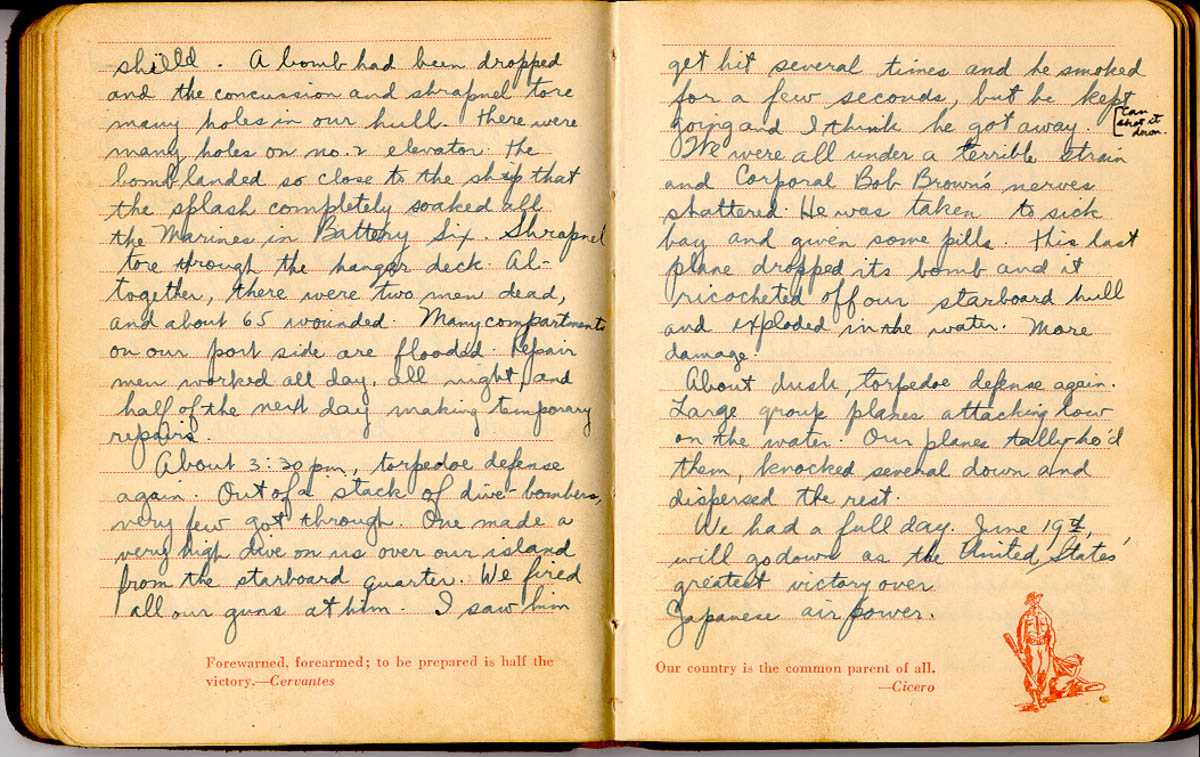 shilld. A bomb had been dropped
and the concussion and shrapnel tore
many holes in our hull. There were
many holes on no. 2 elevator. The
bomb landed so close to the ship that
the splash completely soaked all
the Marines in Battery Six. Shrapnel
tore through the hangar deck. Al-
together, there were two men dead,
and about 65 wounded. Many compartments
on our port side are flooded. Repair
men worked all day, all night, and
half of the next day making temporary
repairs.
About 3:30 pm, torpedoe defense
again. Out of a stack of dive-bombers,
very few got through. One made a
very high dive on us over our island
from the starboard quarter. We fired
all our guns at him. I saw him
Forewarned, forearmed; to be prepared is half the
victory.—Cervantes
get hit several times and he smoked
for a few seconds, but he kept
going and I think he got away. [Can
shot it
down.
We were all under a terrible strain
and Corporal Bob Brown's nerves
shattered. He was taken to sick
bay and given some pills. This last
plane dropped its bomb and it
ricocheted off our starboard hull
and exploded in the water. More
damage.
About dusk, torpedoe defense again.
Large group planes attacking low
on the water. Our planes tally-ho'd
them, knocked several down and
dispersed the rest.
We had a full day. June 19th,
will go down as the United States'
greatest victory over
Japanese air power.
Our country is the common parent of all.
—Cicero